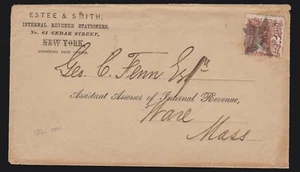 ESTEE & SMITH,
INTERNAL REVENUE STATIONERS,
No. 61 CEDAR STREET,
NEW YORK.
Geo. C. Fenn Esqr
Assistant Assessor of Internal Revenue,
Ware
Mass